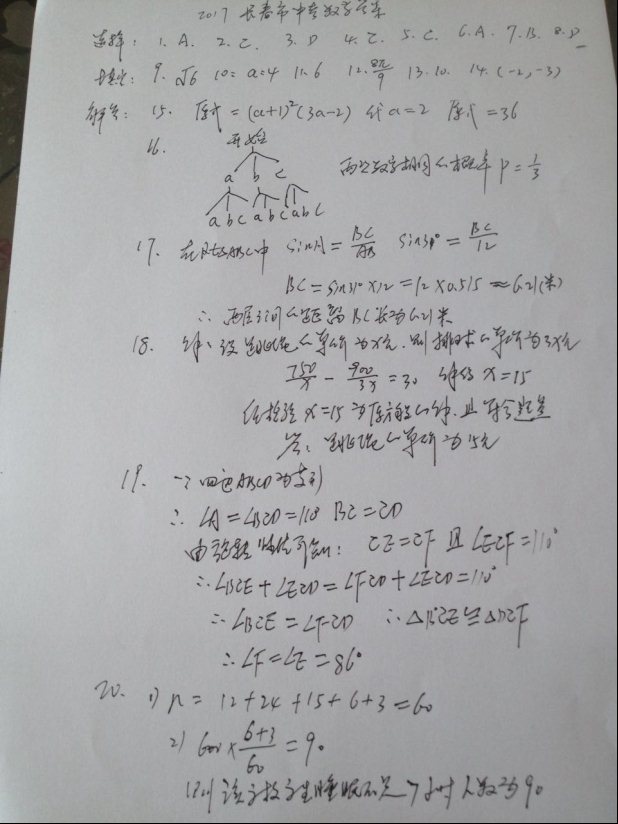 2017 长春市中考数学答案
选择: 1. A. 2. C. 3. D 4. C. 5. C. 6. A. 7. B. 8. D
填空: 9. √6 10. a=4 11. 6 12. 8π/9 13. 10. 14. (-2,-3)
解答: 15. 原式=(a+1)²(3a-2) 代a=2 原式=36
16. 开始
a b c
a b c a b c a b c
两次数字相同的概率 P=1/3
17. 在Rt△ABC中 sinA=BC/AB sin31°=BC/12
BC=sin31°×12=12×0.515≈6.21(米)
∴两层之间的距离BC长为6.21米
18. 解:设跳绳的单价为x元.则排球的单价为3x元
750/x-900/3x=30 解得 x=15
经检验 x=15为原方程的解.且符合题意
答:跳绳的单价为15元
19. ∵四边ABCD为菱形
∴∠A=∠BCD=110° BC=CD
由旋转性质可知: CE=CF 且∠ECF=110°
∴∠BCE+∠ECD=∠FCD+∠ECD=110°
∴∠BCE=∠FCD ∴△BCE≌△DCF
∴∠F=∠E=86°
20. 1) n=12+24+15+6+3=60
2) 600×6+3/60=90
该学校学生睡眠不足7小时人数为90